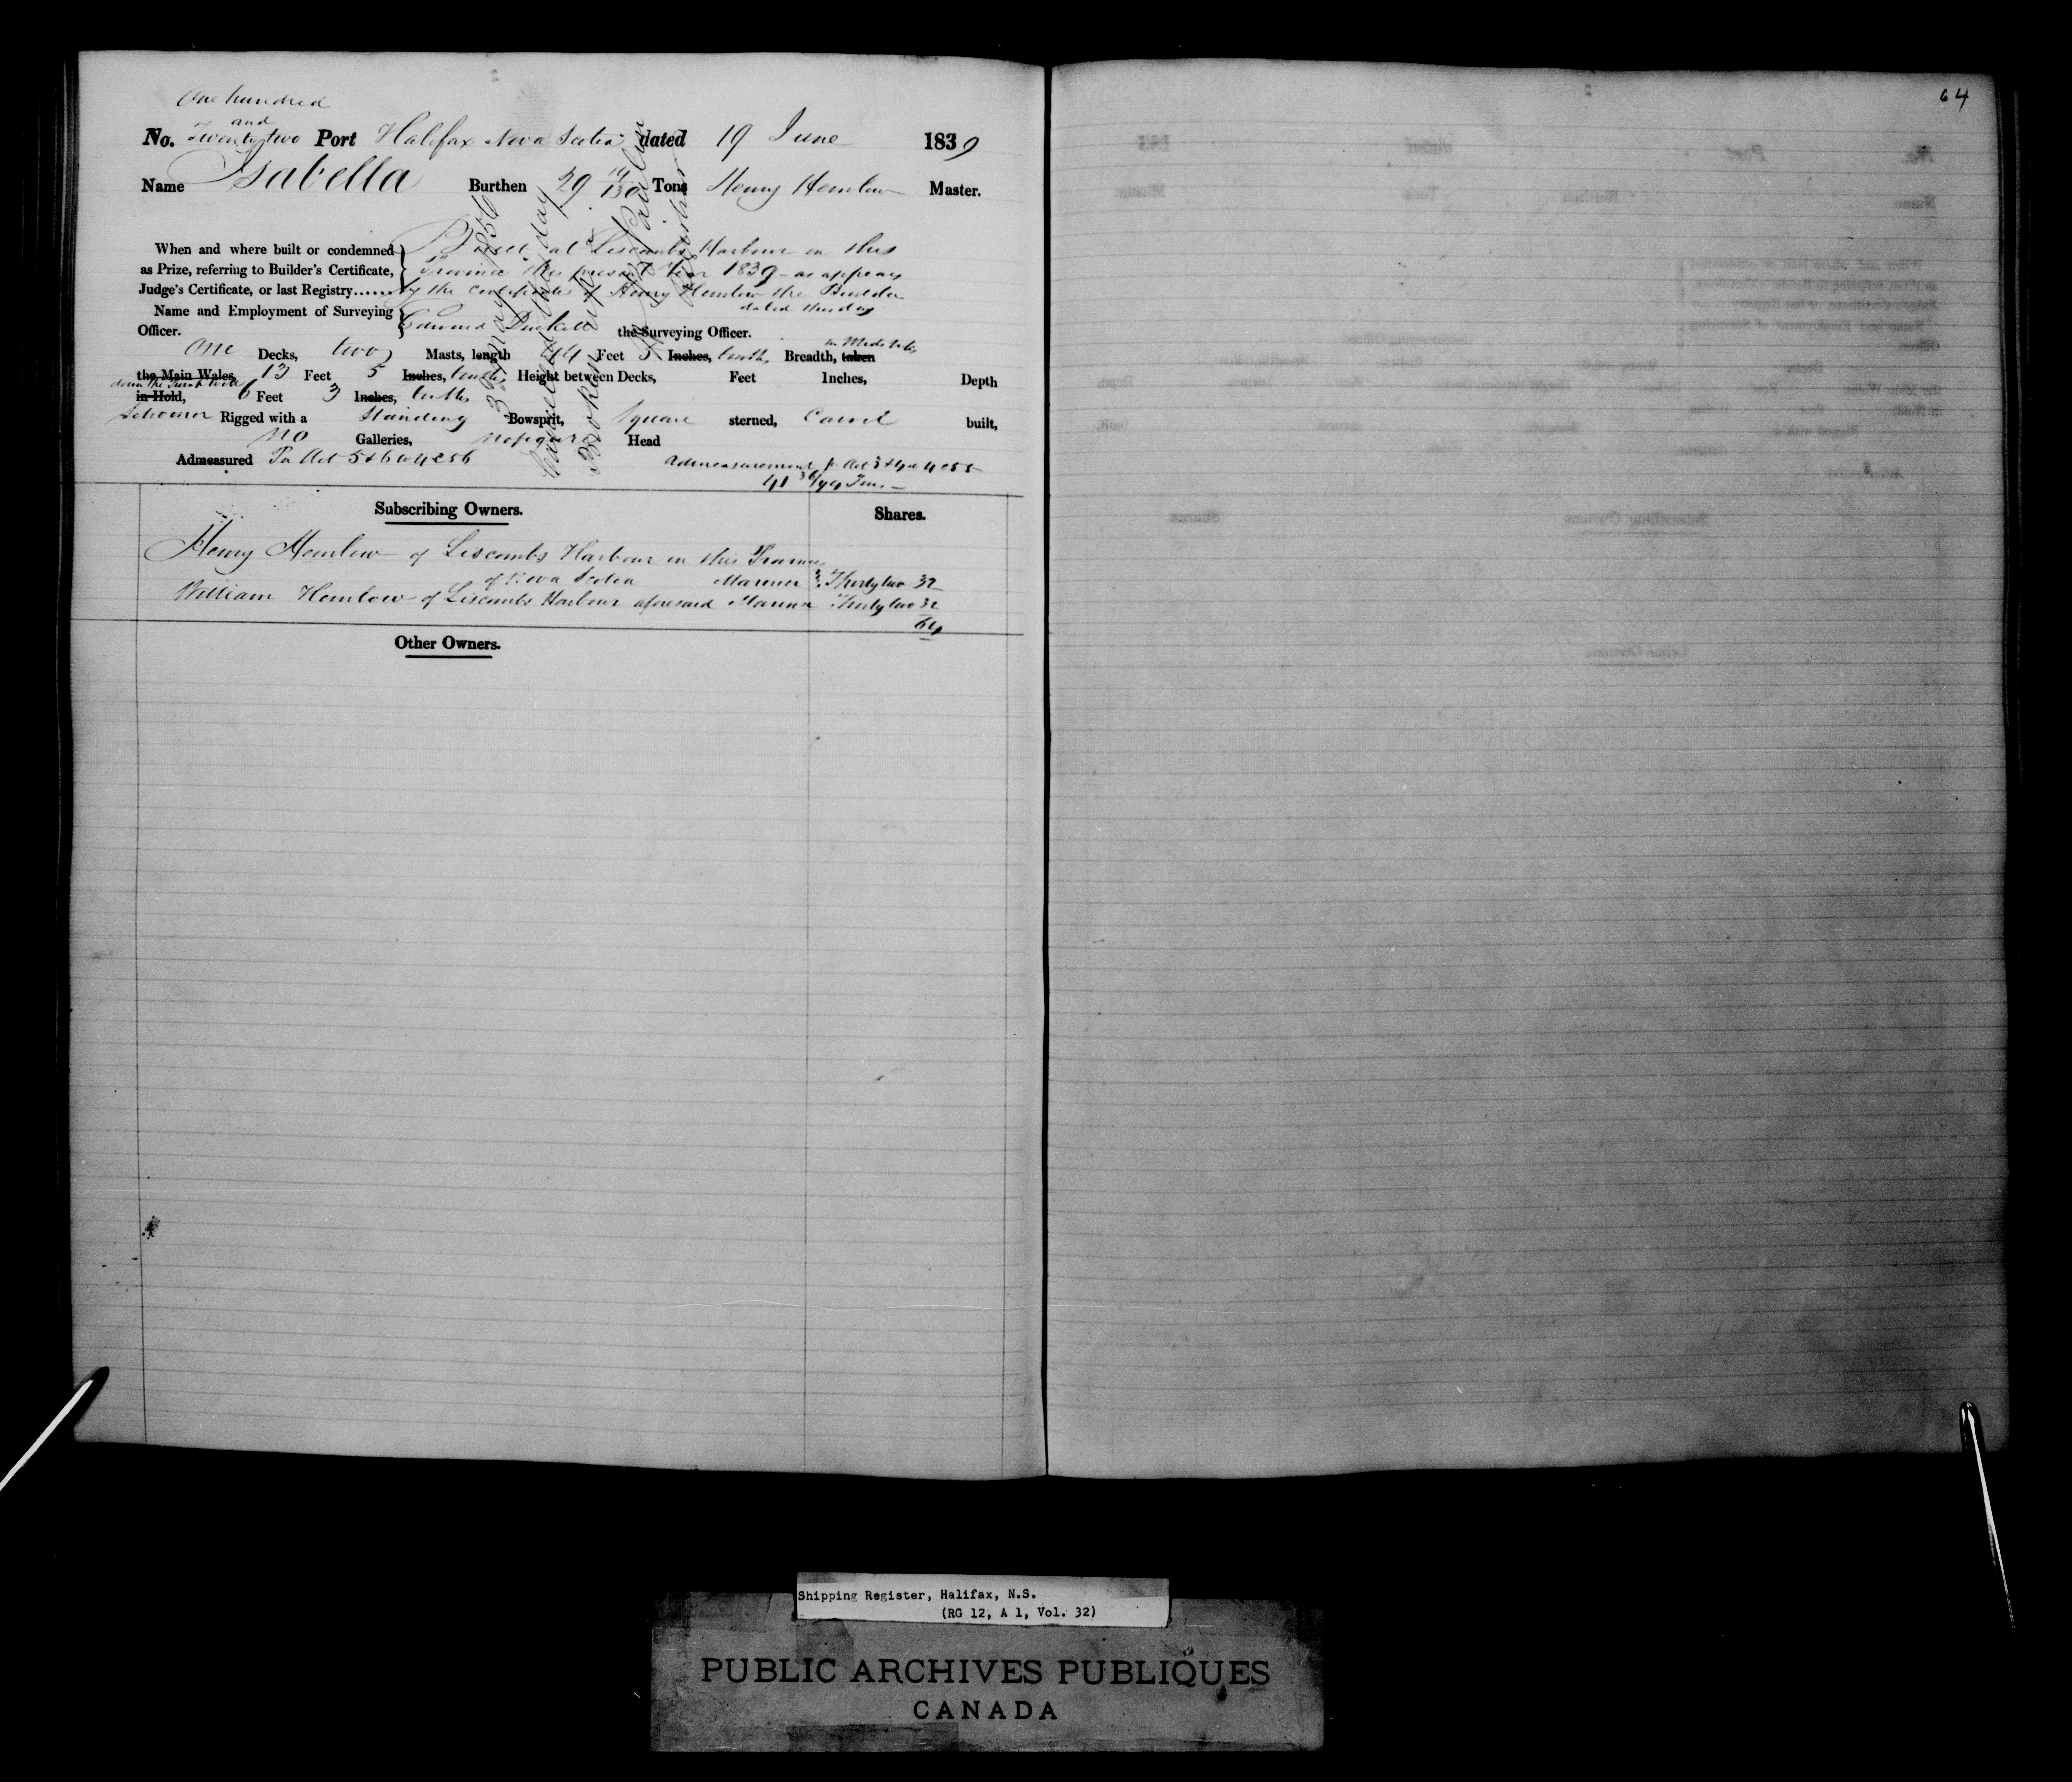 64
One hundred
and
No. Twenty two Port Halifax Nova Scotia dated 19 June 1839
Name Isabella Burthen 29 Tons Henry Hemlow Master.
When and where built or condemned Built at Liscombs Harbour in this
as Prize, referring to Builder's Certificate, Province this present Year 1839 - as appears
Judge's Certificate, or last Registry...... by the Certificate of Henry Hemlow the Builder
dated this day
Name and Employment of Surveying
Officer. Edward Duckett the Surveying Officer.
One Decks, two Masts, length 44 Feet 5 Inches, tenths, Breadth, taken in Midships
the Main Wales, 13 Feet 5 Inches, tenths Height between Decks, Feet Inches, Depth
in Hold, 6 Feet 3 Inches, tenths
Schooner Rigged with a Standing Bowsprit, Square sterned, Carvel built,
No Galleries, No figure Head
Admeasured Pr Act 5 & 6 W 4 c 56
41 Tons
Subscribing Owners. Shares.
Henry Hemlow of Liscombs Harbour in this Province
of Nova Scotia Mariner Thirty two 32
William Hemlow of Liscombs Harbour aforesaid Mariner Thirty two 32
64
Other Owners.
Cancelled this day
3 May 1856
Broken up
Shipping Register, Halifax, N.S.
(RG 12, A 1, Vol. 32)
PUBLIC ARCHIVES PUBLIQUES
CANADA